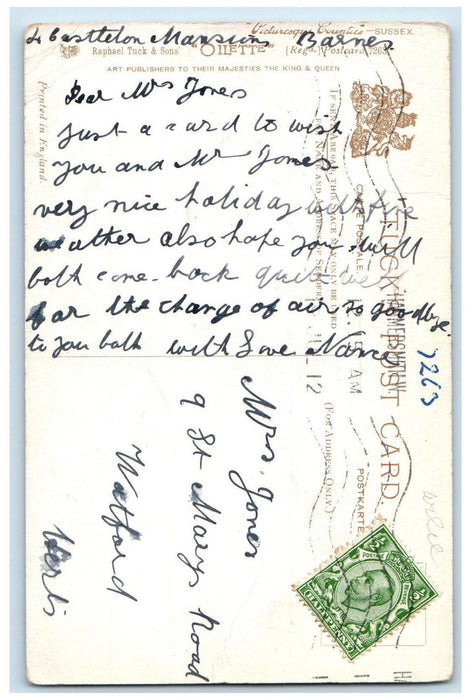 4 Castleton Mansion Barnes
"Picturesque Counties" – SUSSEX.
Raphael Tuck & Sons' "OILETTE" (Regd.) Postcard 7263
ART PUBLISHERS TO THEIR MAJESTIES THE KING & QUEEN
Printed in England.
Dear Mrs Jones
Just a card to wish
you and Mr Jones
very nice holiday with fine
weather also hope you will
both come back quite well
for the change of air so goodbye
to you both with Love
Mrs. Jones
9 St Marys Road
Watford
Herts
CARTE POSTALE.
TUCK'S POST CARD
(FOR ADDRESS ONLY.)
POSTKARTE
HAMMERSMITH.W
AM
12
7263
POSTAGE
HALFPENNY